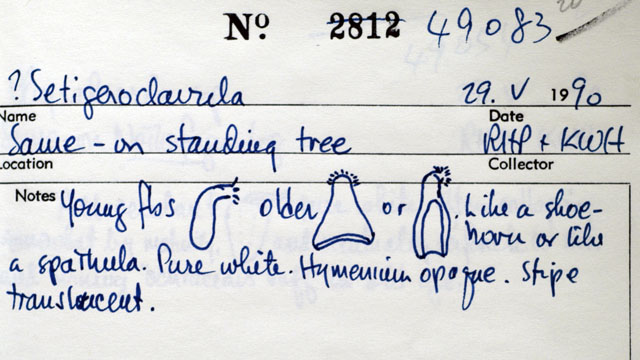 Nº 2812 49083
? Setigeroclavula 29. V 1990
Name Date
Same - on standing tree RHP + KWH
Location Collector
Notes Young flos older or . Like a shoe-
horn or like
a spathula. Pure white. Hymenium opaque. Stipe
translucent.